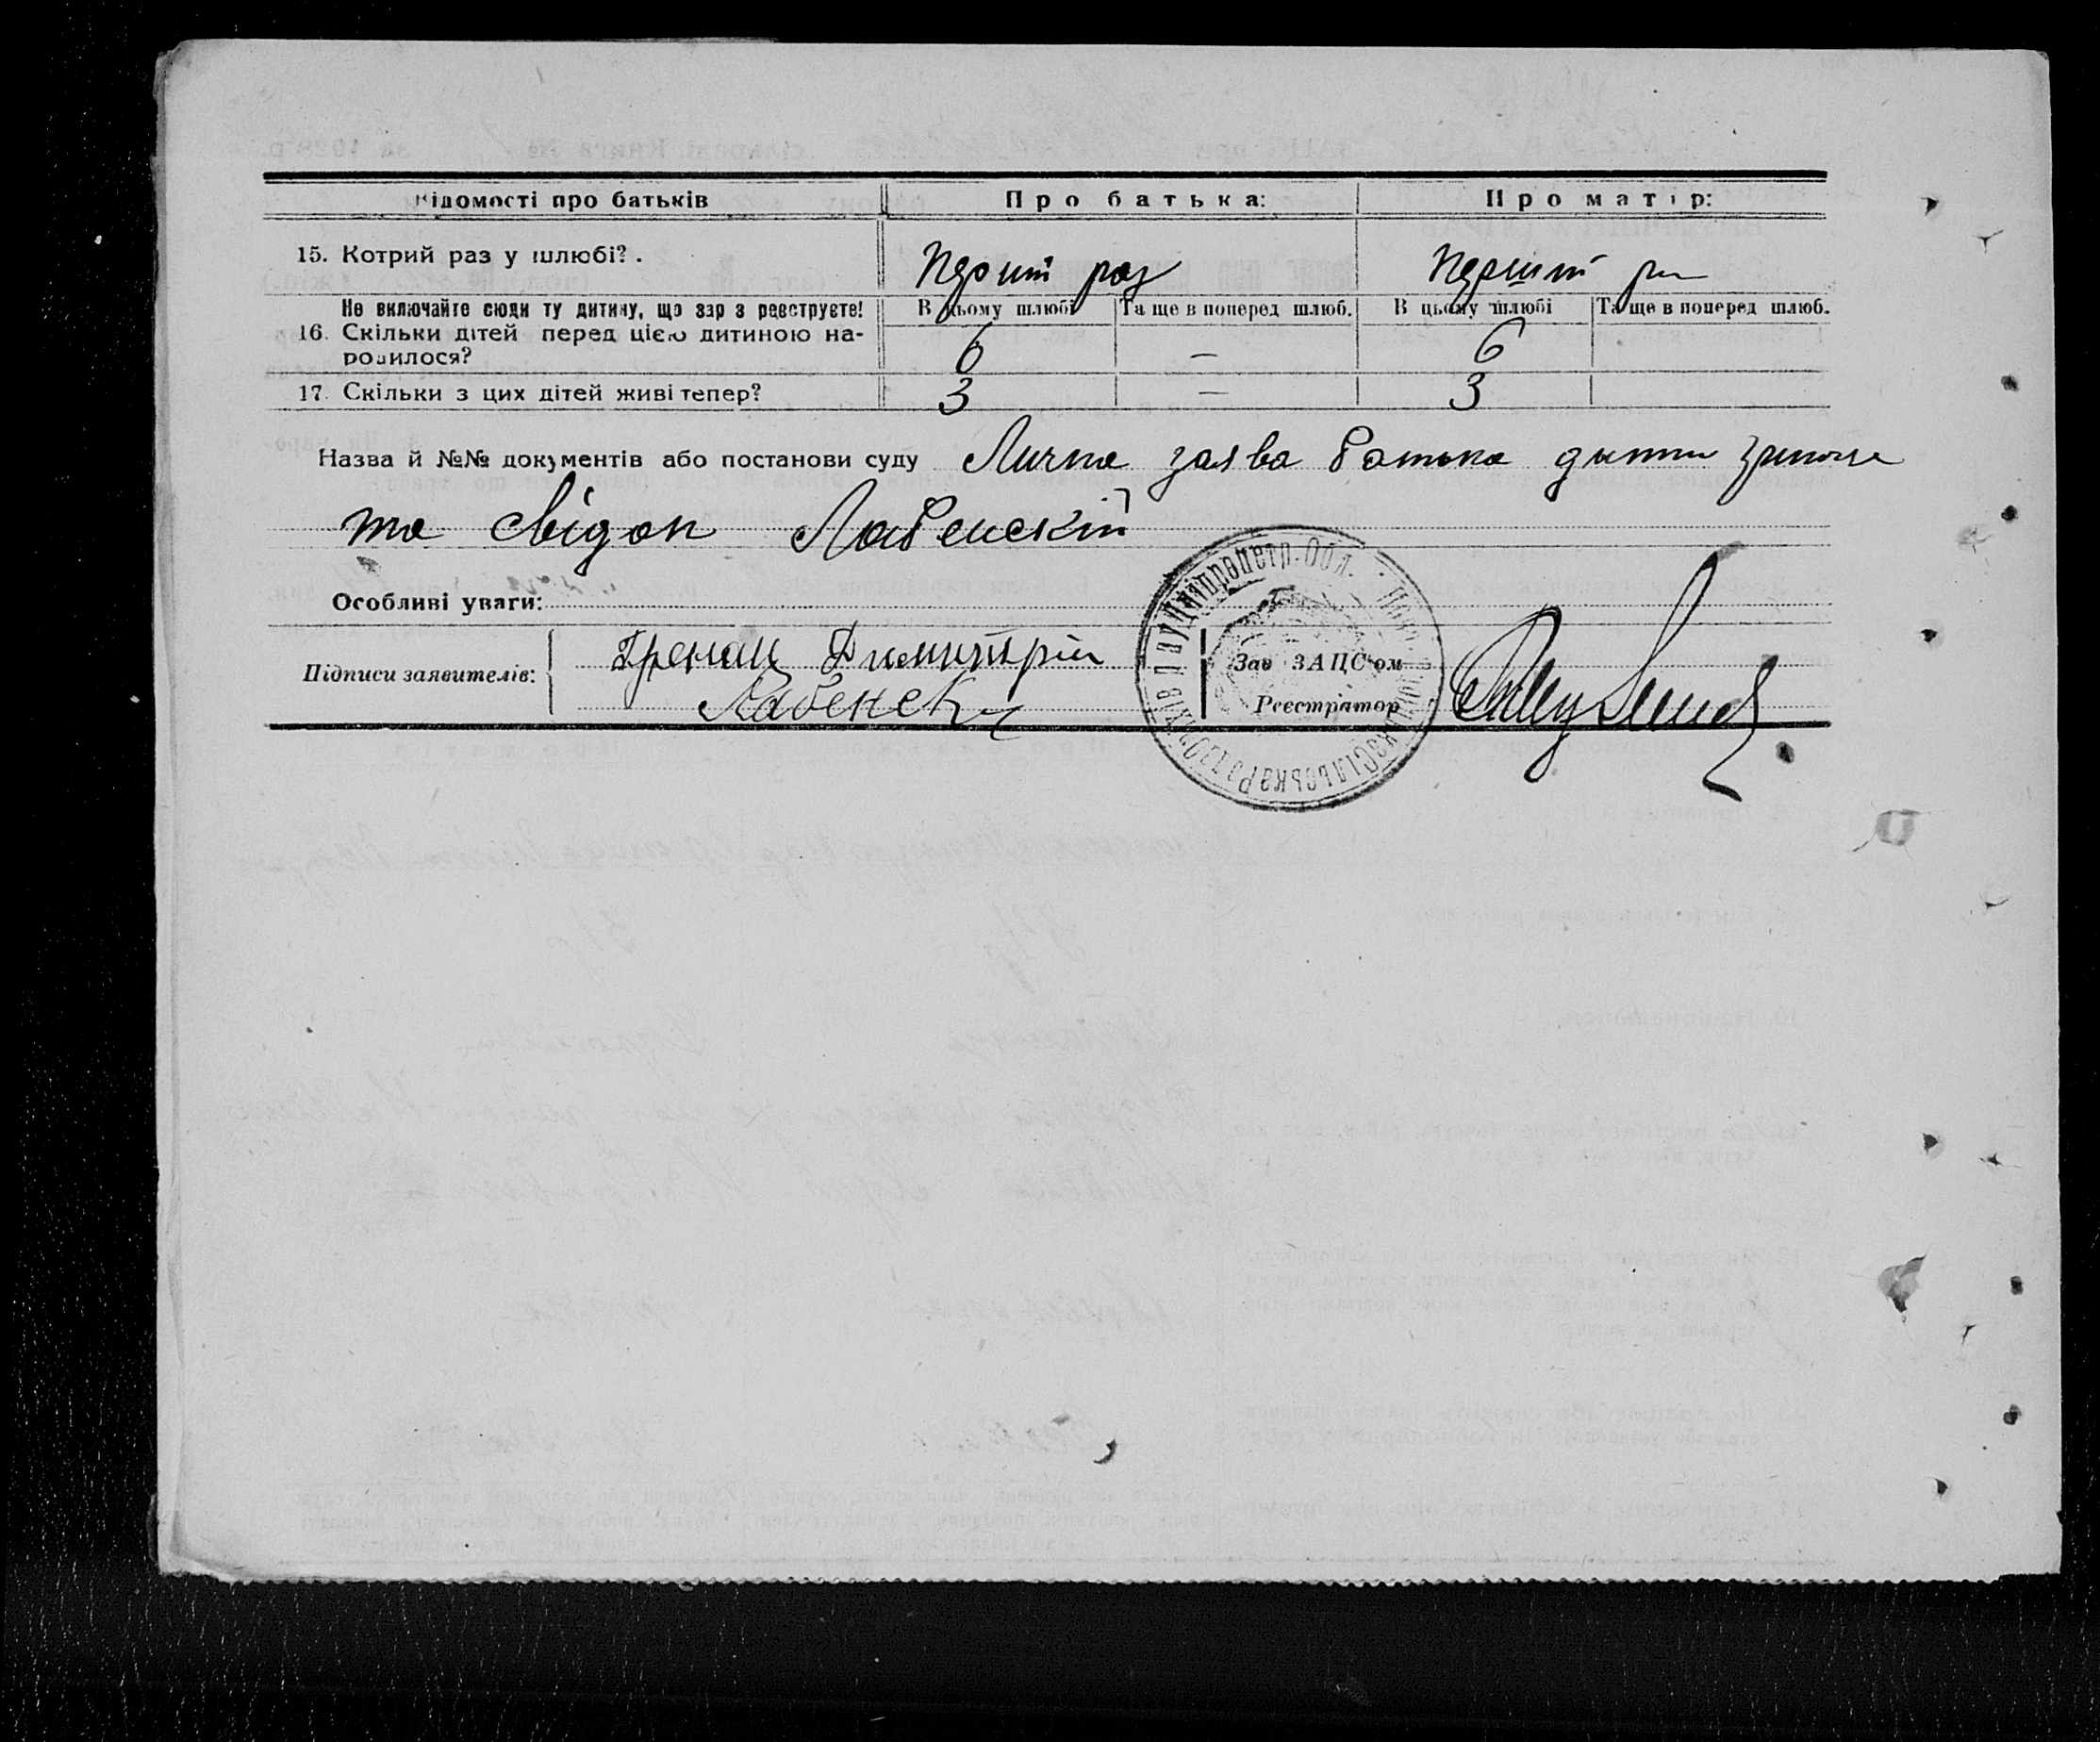 Відомості про батьків Про батька: Про матір:
15. Котрий раз у шлюбі? . Перший раз Перший раз
Не включайте сюди ту дитину, що зараз реєструєте! В цьому шлюбі Та ще в поперед шлюб. В цьому шлюбі Та ще в поперед шлюб.
16. Скільки дітей перед цією дитиною на-
родилося? 6 — 6
17. Скільки з цих дітей живі тепер? 3 — 3
Назва й №№ документів або постанови суду Лична заява батька дитини
та свідок Лабенский
Особливі уваги:
Підписи заявителів: Димитрий
Лабенск
Зав ЗАЦС'ом
Реєстратор
Дніпропетр. Обл. Сільська Рада